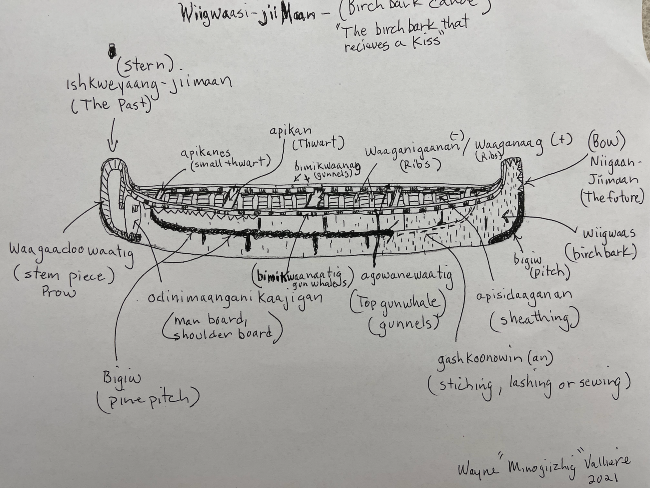 Wiigwaasi-jiiMaan - (Birch bark Canoe)
"The birch bark that
recieves a Kiss"
(stern)
ishkweyaang-jiimaan
(The Past)
apikan
(Thwart)
apikanes
(small thwart)
bimikwaanag
(gunnels)
Waaganigaanan(-)/
(Ribs)
Waaganaag (+)
(Ribs)
(Bow)
Niigaan-
Jiimaan
(The future)
wiigwaas
(birch bark)
bigiw
(pitch)
Waagaadoowaatig
(stem piece)
Prow
odinimaangani kaajigan
(man board,
shoulder board)
(bimikwaanaatig
gunwhales)
agowanewaatig
(Top gunwhale)
(gunnels)
apisidaaganan
(sheathing)
gashkoonowin (an)
(stiching, lashing or sewing)
Bigiw
(pine pitch)
Wayne "Minogiizhig" Valliere
2021